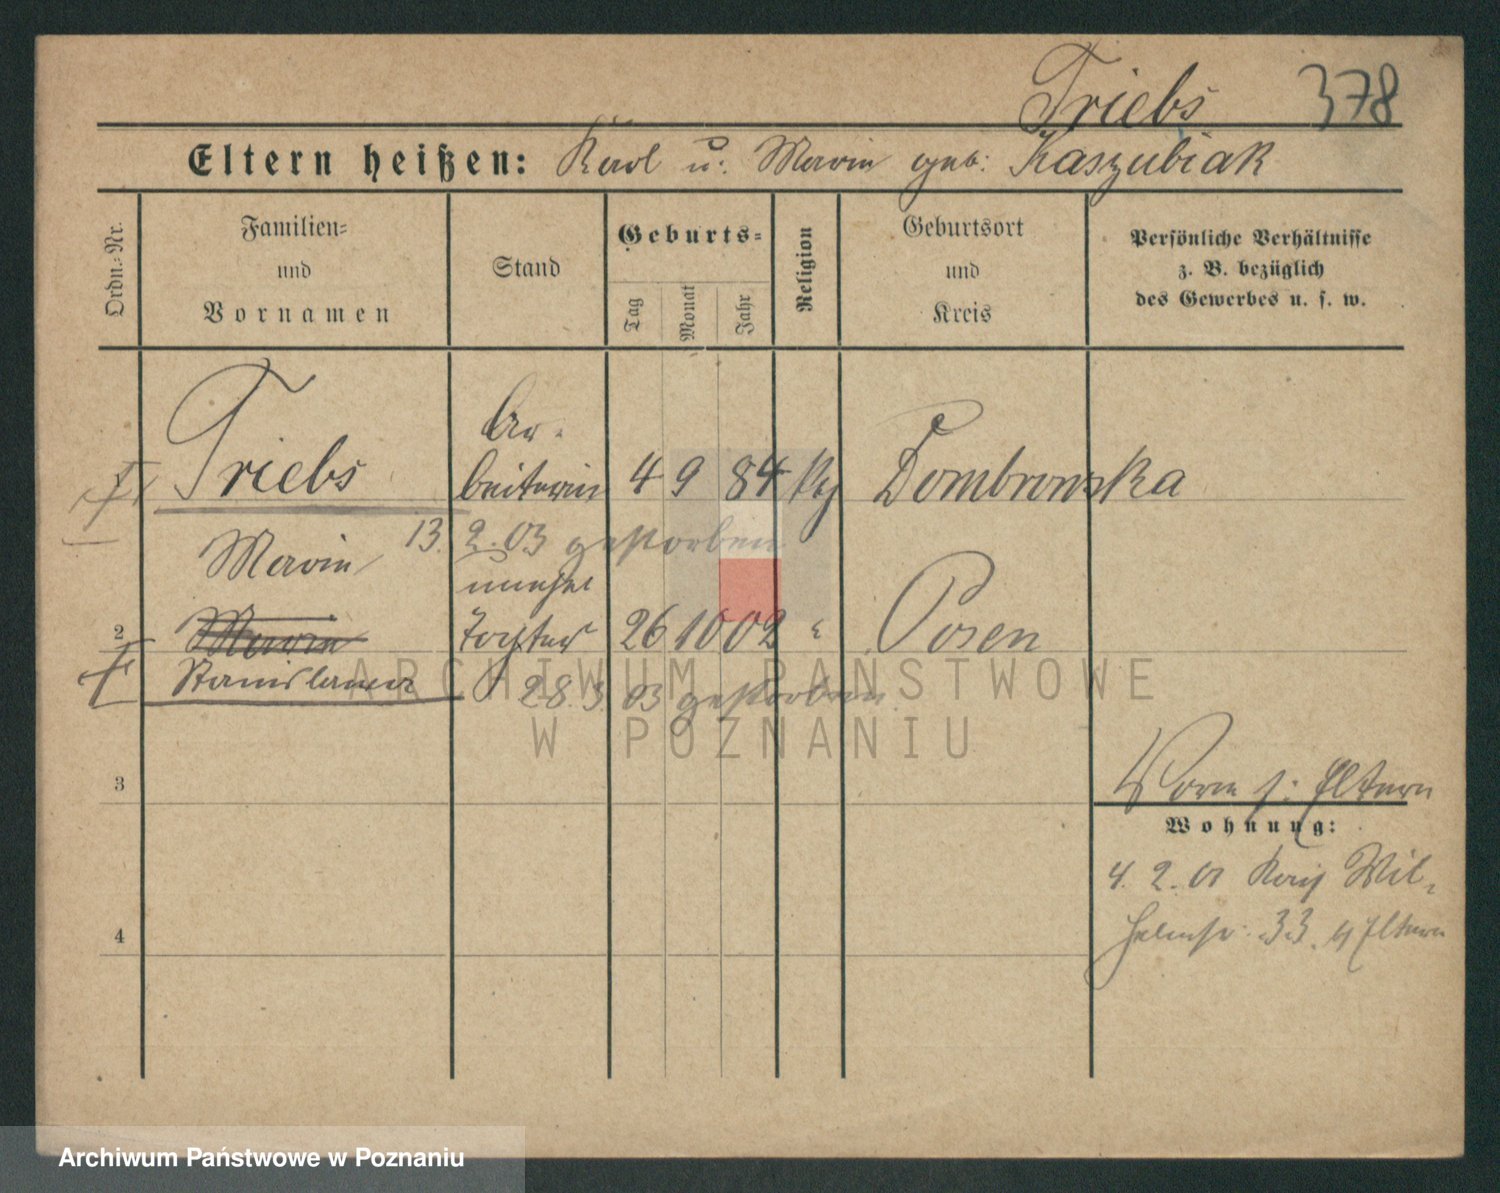 Triebs 378
Eltern heißen: Karl u: Marie geb: Kaszubiak
Ordn.-Nr.
Familien-
und
Vornamen
Stand
Geburts-
Tag
Monat
Jahr
Religion
Geburtsort
und
Kreis
Persönliche Verhältnisse
z. B. bezüglich
des Gewerbes u. s. w.
Triebs
Ar-
beiterin 4 9 84 Dombrowska
13. 2. 03 gestorben
Marie
unehel
2 Marie Tochter 26 10 02 " Posen
Stanislawa
28. 3. 03 gestorben
3
s: Eltern
Wohnung:
4. 2. 01 Wil-
helmstr: 33. Eltern
4
ARCHIWUM PAŃSTWOWE
W POZNANIU
Archiwum Państwowe w Poznaniu